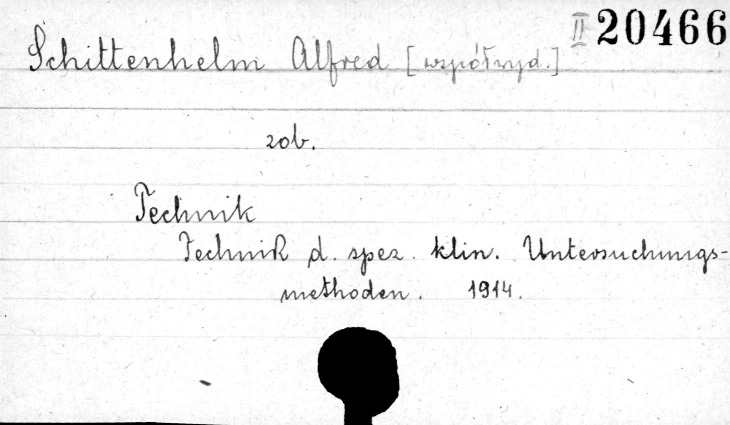 II 20466
Schittenhelm Alfred [współwyd.]
zob.
Technik
Technik d. spez. klin. Untersuchungs-
methoden. 1914.